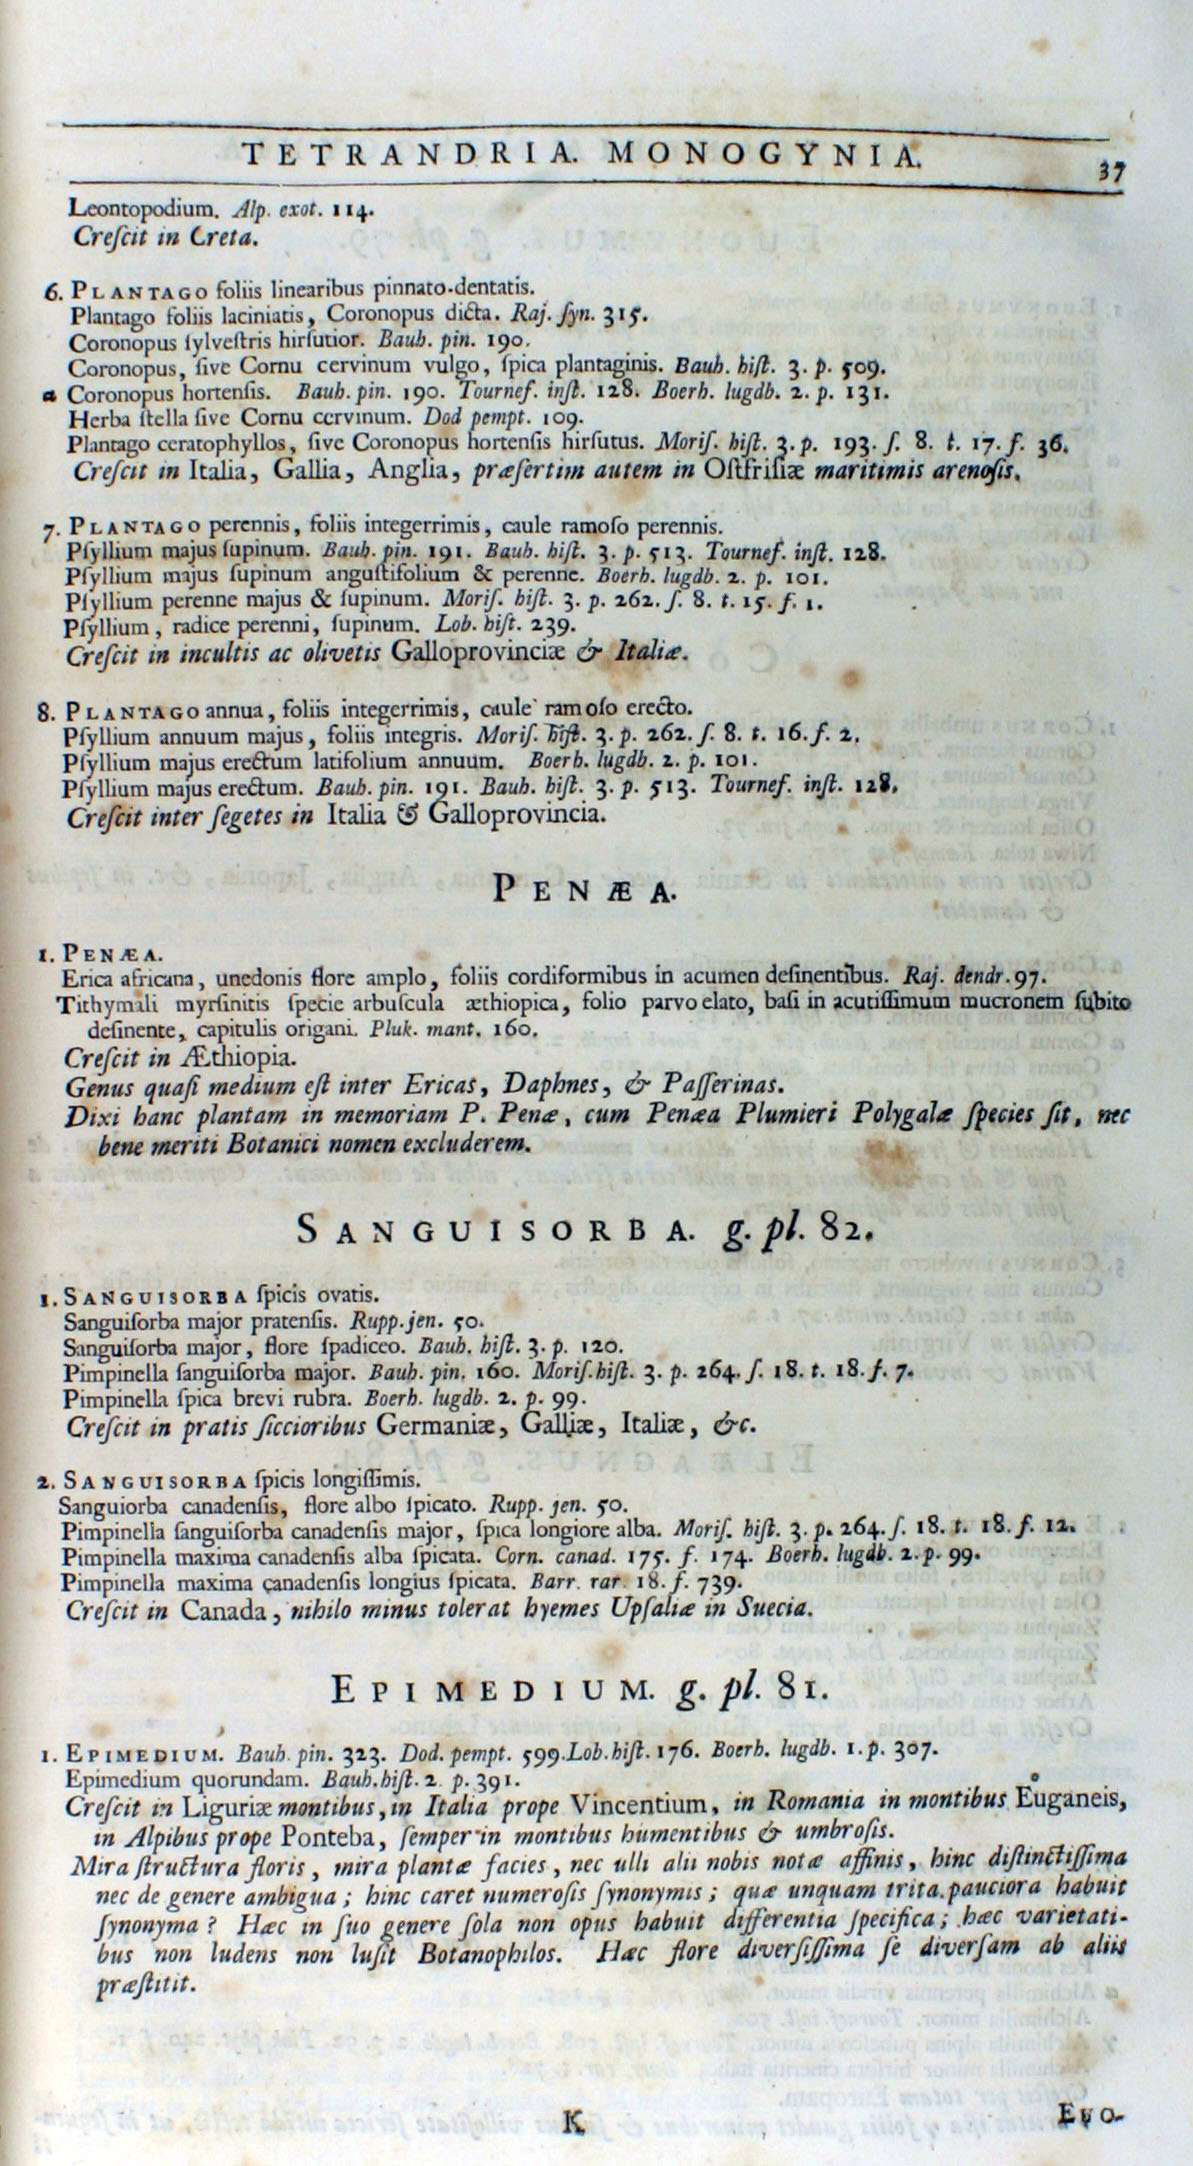 TETRANDRIA. MONOGYNIA. 37
Leontopodium. Alp. exot. 114.
Creſcit in Creta.
6. PLANTAGO foliis linearibus pinnato-dentatis.
Plantago foliis laciniatis, Coronopus dicta. Raj. ſyn. 315.
Coronopus ſylveſtris hirſutior. Bauh. pin. 190.
Coronopus, ſive Cornu cervinum vulgo, ſpica plantaginis. Bauh. hiſt. 3. p. 509.
α Coronopus hortenſis. Bauh. pin. 190. Tournef. inſt. 128. Boerh. lugdb. 2. p. 131.
Herba ſtella ſive Cornu cervinum. Dod pempt. 109.
Plantago ceratophyllos, ſive Coronopus hortenſis hirſutus. Moriſ. hiſt. 3. p. 193. ſ. 8. t. 17. f. 36.
Creſcit in Italia, Gallia, Anglia, præſertim autem in Oſtfriſiæ maritimis arenoſis.
7. PLANTAGO perennis, foliis integerrimis, caule ramoſo perennis.
Pſyllium majus ſupinum. Bauh. pin. 191. Bauh. hiſt. 3. p. 513. Tournef. inſt. 128.
Pſyllium majus ſupinum anguſtifolium & perenne. Boerh. lugdb. 2. p. 101.
Pſyllium perenne majus & ſupinum. Moriſ. hiſt. 3. p. 262. ſ. 8. t. 15. f. 1.
Pſyllium, radice perenni, ſupinum. Lob. hiſt. 239.
Creſcit in incultis ac olivetis Galloprovinciæ & Italiæ.
8. PLANTAGO annua, foliis integerrimis, caule ramoſo erecto.
Pſyllium annuum majus, foliis integris. Moriſ. hiſt. 3. p. 262. ſ. 8. t. 16. f. 2.
Pſyllium majus erectum latifolium annuum. Boerh. lugdb. 2. p. 101.
Pſyllium majus erectum. Bauh. pin. 191. Bauh. hiſt. 3. p. 513. Tournef. inſt. 128.
Creſcit inter ſegetes in Italia & Galloprovincia.
PENÆA.
1. PENÆA.
Erica africana, unedonis flore amplo, foliis cordiformibus in acumen deſinentibus. Raj. dendr. 97.
Tithymali myrſinitis ſpecie arbuſcula æthiopica, folio parvo elato, baſi in acutiſſimum mucronem ſubito
deſinente, capitulis origani. Pluk. mant. 160.
Creſcit in Æthiopia.
Genus quaſi medium eſt inter Ericas, Daphnes, & Paſſerinas.
Dixi hanc plantam in memoriam P. Penæ, cum Penæa Plumieri Polygalæ ſpecies ſit, nec
bene meriti Botanici nomen excluderem.
SANGUISORBA. g. pl. 82.
1. SANGUISORBA ſpicis ovatis.
Sanguiſorba major pratenſis. Rupp. jen. 50.
Sanguiſorba major, flore ſpadiceo. Bauh. hiſt. 3. p. 120.
Pimpinella ſanguiſorba major. Bauh. pin. 160. Moriſ. hiſt. 3. p. 264. ſ. 18. t. 18. f. 7.
Pimpinella ſpica brevi rubra. Boerh. lugdb. 2. p. 99.
Creſcit in pratis ſiccioribus Germaniæ, Galliæ, Italiæ, &c.
2. SANGUISORBA ſpicis longiſſimis.
Sanguiorba canadenſis, flore albo ſpicato. Rupp. jen. 50.
Pimpinella ſanguiſorba canadenſis major, ſpica longiore alba. Moriſ. hiſt. 3. p. 264. ſ. 18. t. 18. f. 12.
Pimpinella maxima canadenſis alba ſpicata. Corn. canad. 175. f. 174. Boerh. lugdb. 2. p. 99.
Pimpinella maxima canadenſis longius ſpicata. Barr. rar. 18. f. 739.
Creſcit in Canada, nihilo minus tolerat hyemes Upſaliæ in Suecia.
EPIMEDIUM. g. pl. 81.
1. EPIMEDIUM. Bauh. pin. 323. Dod. pempt. 599. Lob. hiſt. 176. Boerh. lugdb. 1. p. 307.
Epimedium quorundam. Bauh. hiſt. 2. p. 391.
Creſcit in Liguriæ montibus, in Italia prope Vincentium, in Romania in montibus Euganeis,
in Alpibus prope Ponteba, ſemper in montibus humentibus & umbroſis.
Mira ſtructura floris, mira plantæ facies, nec ulli alii nobis notæ affinis, hinc diſtinctiſſima
nec de genere ambigua; hinc caret numeroſis ſynonymis; quæ unquam trita pauciora habuit
ſynonyma? Hæc in ſuo genere ſola non opus habuit differentia ſpecifica; hæc varietati-
bus non ludens non luſit Botanophilos. Hæc flore diverſiſſima ſe diverſam ab aliis
præſtitit.
K Evo-